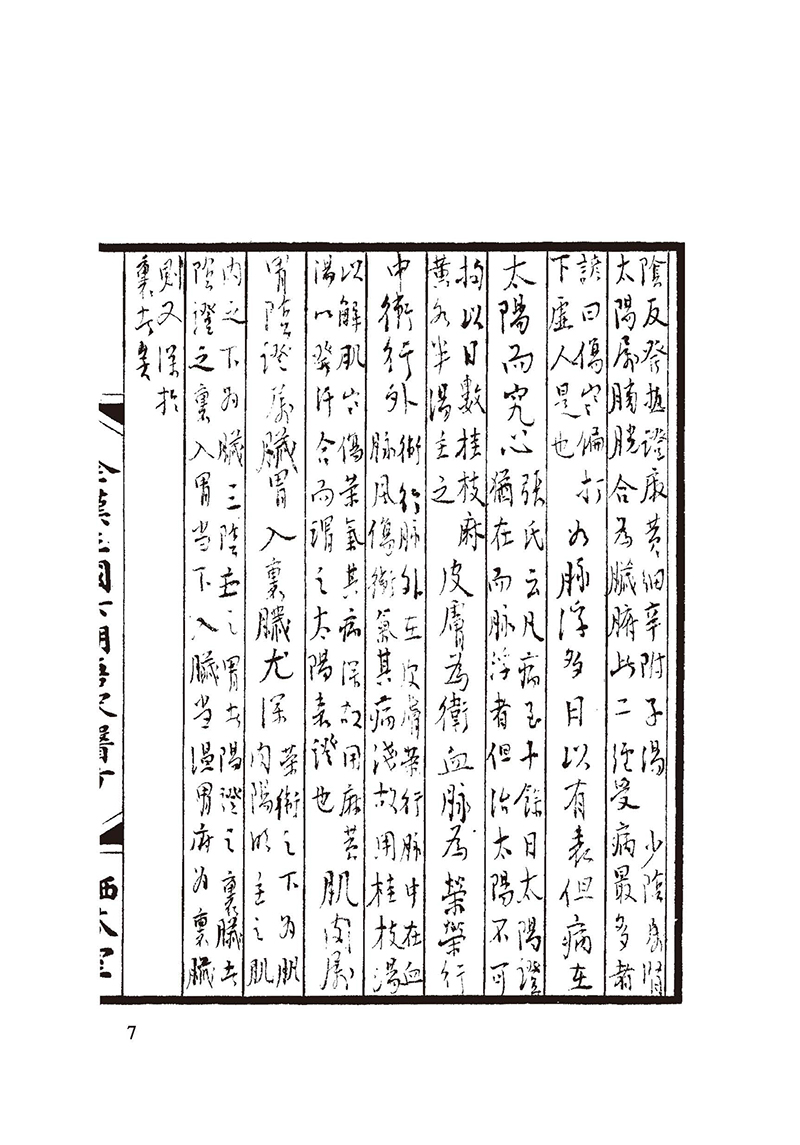 陰反發热證麻黄細辛附子湯 少陰属腎
太陽属膀胱合為臟腑此二經受病最多者
諺曰傷岂偏打
下虚人是也
如脉浮多日以有表但病在
太陽而究心
張氏云凡病至十餘日太陽證
猶在而脉浮者但治太陽不可
拘以日數桂枝麻
黄各半湯主之
皮膚為衛血脉為榮榮行
中衛行外
衛行脉外在皮膚榮行脉中在血
脉風傷衛氣其病淺故用桂枝湯
以解肌岂傷榮氣其病深故用麻黄
湯以發汗合而謂之太陽表證也
肌肉属
胃陰證属臟胃入裏臟尤深
榮衛之下為肌
肉陽明主之肌
肉之下為臟三陰主之胃者陽證之裏臟者
陰證之裏入胃当下入臟当温胃府为裏臟
则又深於
裏者矣
7